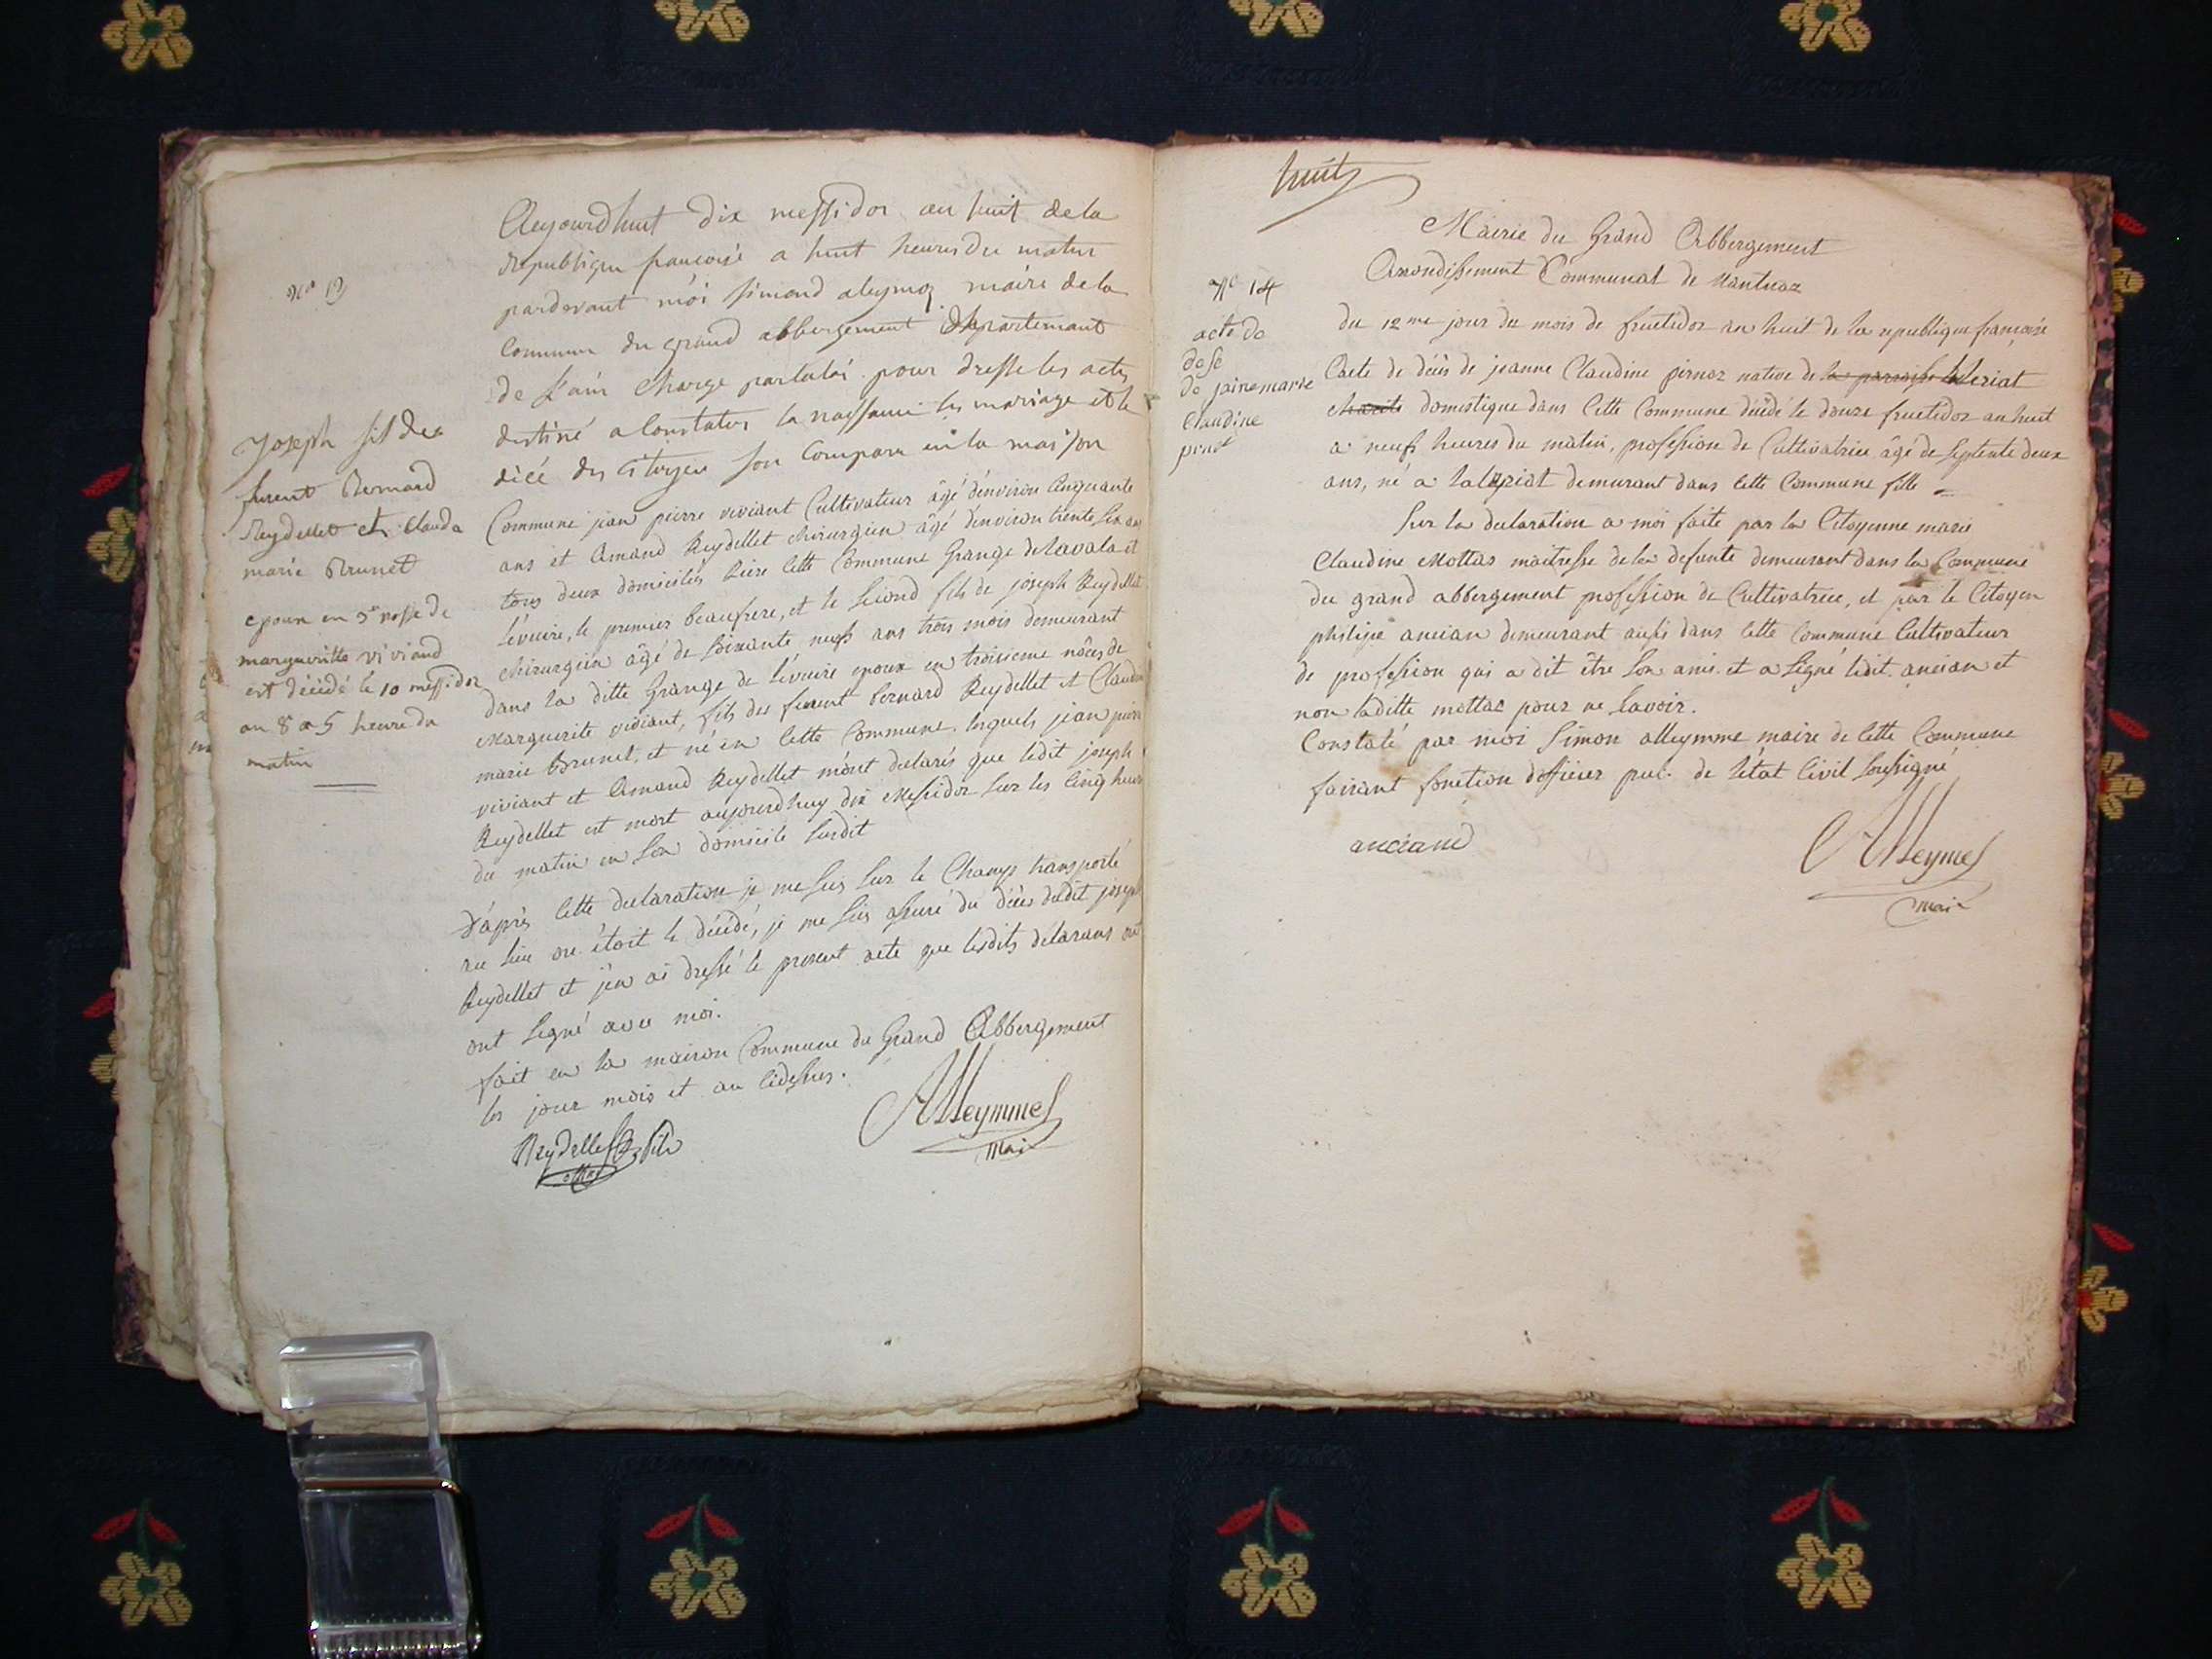 No 13
Joseph fil des
furent Bernard
Reydellet et Clauda
marie Brunet
epoux en 3e nosse de
margueritte viviand
est décédé le 10 messidor
an 8 a 5 heure du
matin
Aujourdhuit dix messidor an huit de la
Republique françoise a huit heures du matin
pardevant moi simond aleymoz maire de la
Commune du grand abbergement Departemant
de l'ain charge partaloi pour dresse les actes
destiné a Constates la naissance les mariage et le
dicé des Citoyen son Compare en la maison
Commune jean pierre viviant Cultivateur âgé d'environ Cinquante
ans et Amand Reydellet chirurgien âgé d'environ trente six ans
tous deux domiciliés rière cette Commune Grange de Lavala et
l'évuire, le premier beaufrere, et le second fils de joseph Reydellet
chirurgien âgé de soixante neuf ans trois mois demeurant
dans la ditte Grange de l'évuire epoux en troisieme nôces de
Marguerite viviant, fils des furent bernard Reydellet et Claudine
marie Brunet, et né en cette Commune. lesquels jean pierre
viviant et Amand Reydellet m'ont declarés que ledit joseph
Reydellet est mort aujourdhuy dix Messidor sur les Cinq heures
du matin en son domicile susdit
D'après cette declaration je me suis sur le Champ transporté
au lieu ou étoit le décédé, je me suis assuré du décès dudit joseph
Reydellet et j'en ai dressé le present acte que lesdits declarans ont
ont signé avec moi.
fait en la maison Commune du Grand Abbergement
les jour mois et an cidessus.
Reydellet fils
Alleymmes
Mair
huit
Mairie du Grand Abbergement
Arrondissement Communal de Nantuaz
No 14
acte de
dese
de jaine marie
Claudine
pernot
du 12me jour du mois de fructidor an huit de la republique françoise
L'acte de décès de jeanne Claudine pernoz native de la paroisse Leriat
domestique dans cette Commune décédé le douze fructidor an huit
a neuf heures du matin, profession de Cultivatrice âgé de septente deux
ans, né a Laleyriat demurant dans cette Commune fille
Sur la declaration a moi faite par la Citoyenne marie
Claudine Mottas maitresse de la defunte demeurant dans la Commune
du grand abbergement profession de Cultivatrice, et par le Citoyen
philipe ancian demeurant aussi dans cette Commune Cultivateur
de profession qui a dit être son ami. et a signé ledit ancian et
non laditte mottaz pour ne savoir.
Constaté par moi Simon alleymme maire de cette Commune
faisant fonction d'officier puc. de l'état Civil soussigné
anciand
Alleymes
Mair